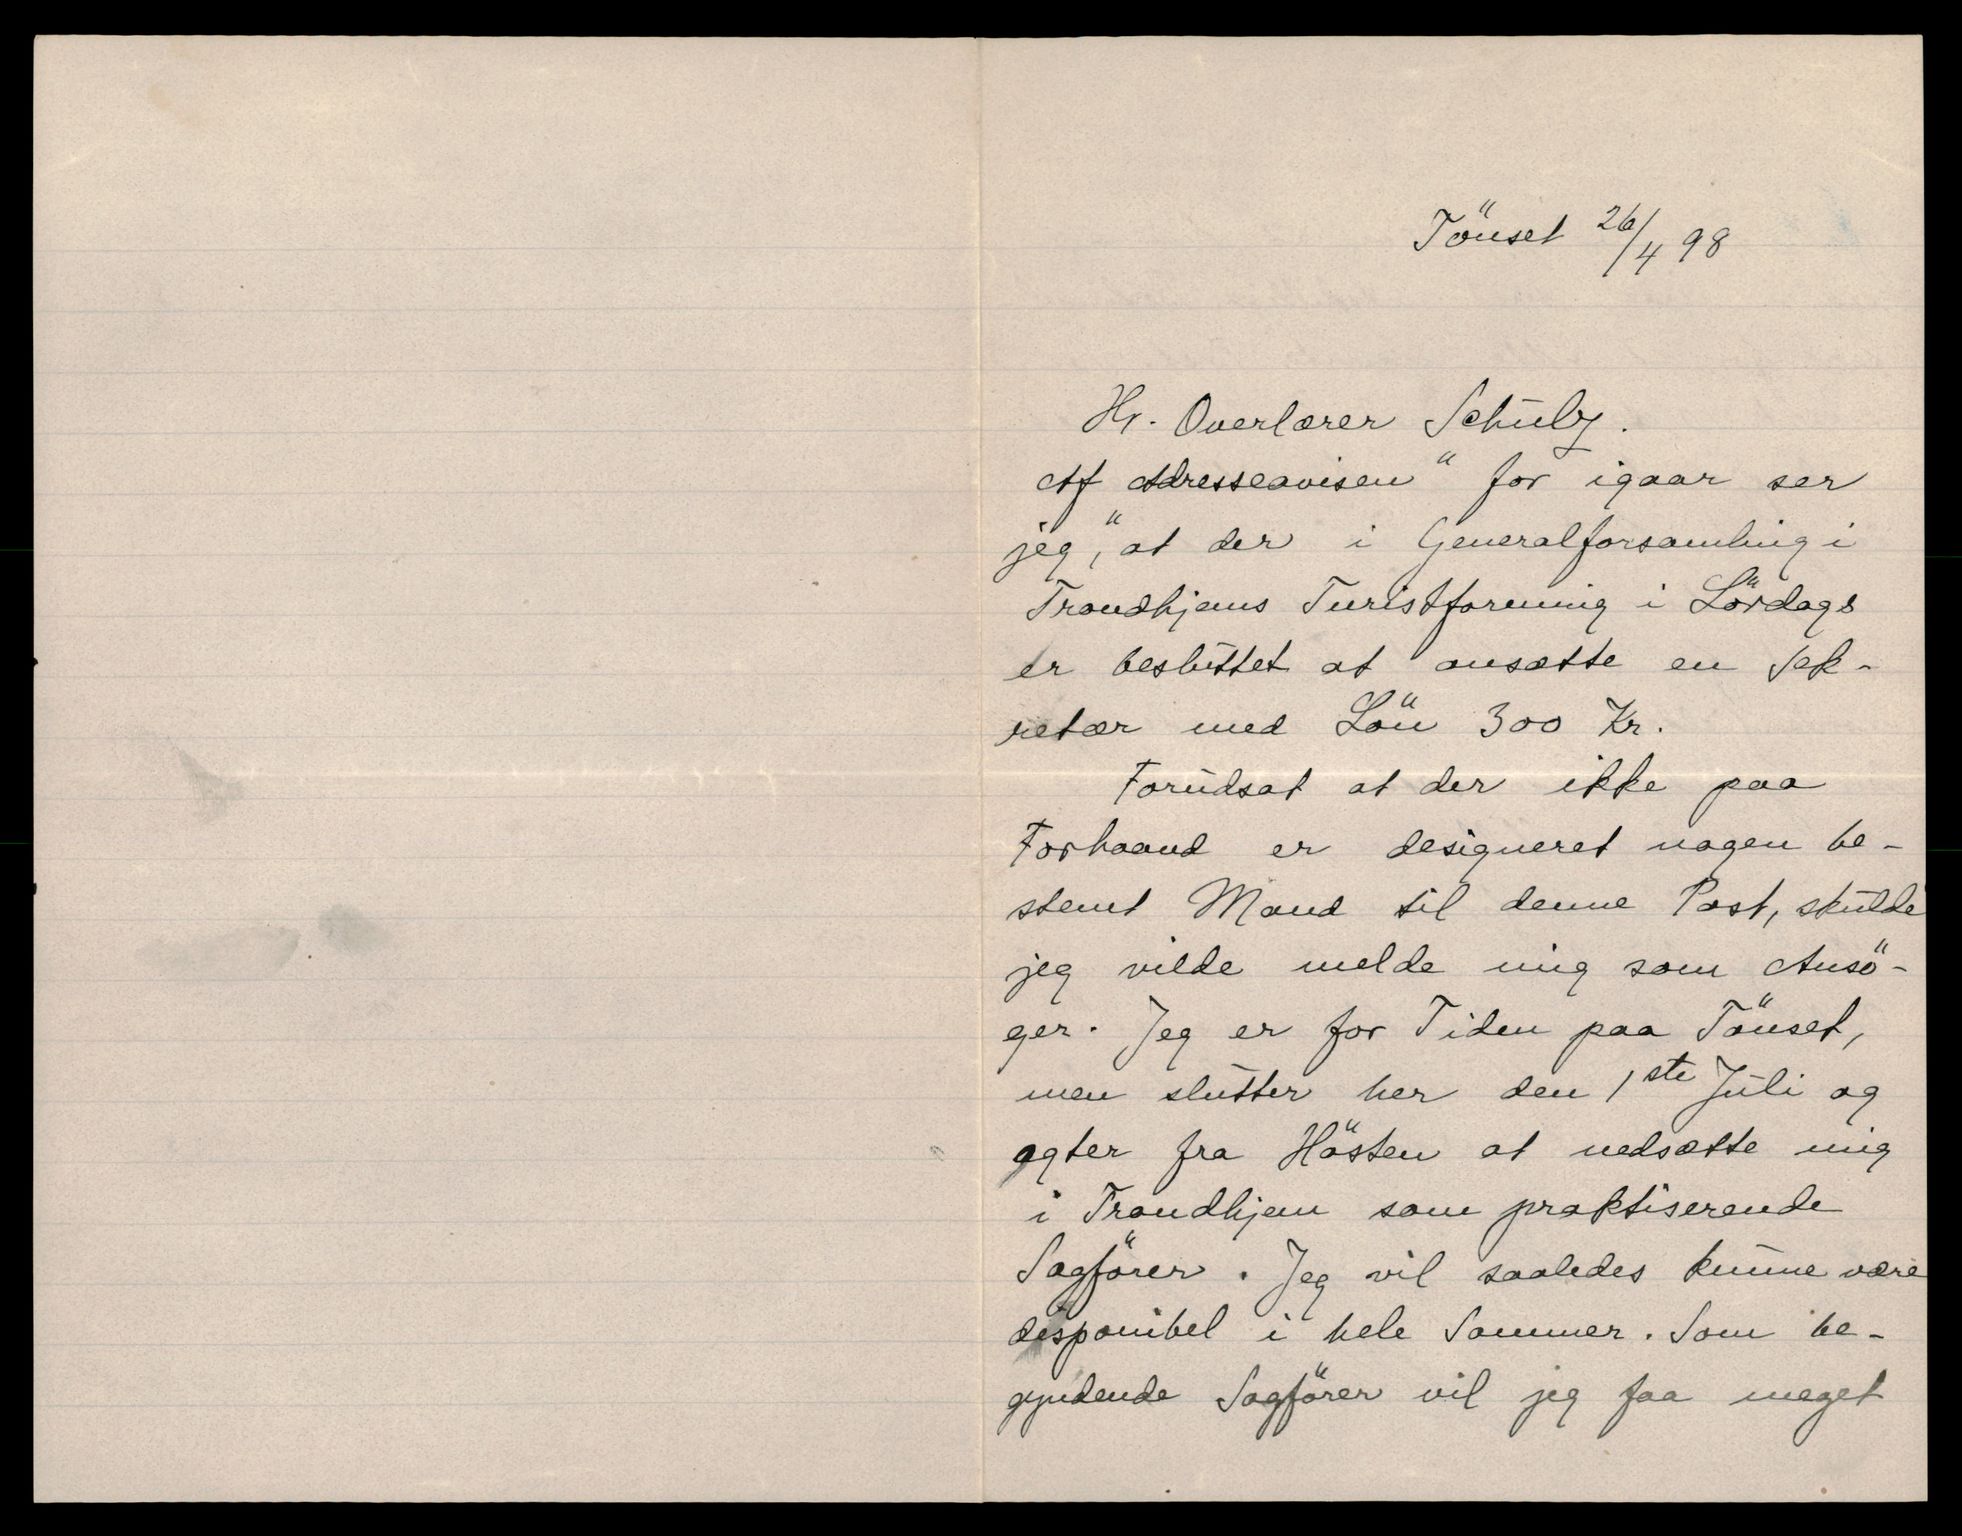 Tönset 26/4 98
Hr. Overlærer Schulz.
Af Adresseavisen" for igaar ser
jeg,„ at der i Generalforsamling i
Trondhjems Turistforening i Lördags
er besluttet at ansætte en Sek-
retær med Lön 300 Kr.
Forudsat at der ikke paa
Forhaand er designeret nogen be-
stemt Mand til denne Post, skulde
jeg vilde melde mig som Ansö-
ger. Jeg er for Tiden paa Tönset,
men slutter her den 1ste Juli og
agter fra Hösten at nedsætte mig
i Trondhjem som praktiserende
Sagförer. Jeg vil saaledes kunne være
disponibel i hele Sommer. Som be-
gyndende Sagförer vil jeg faa meget